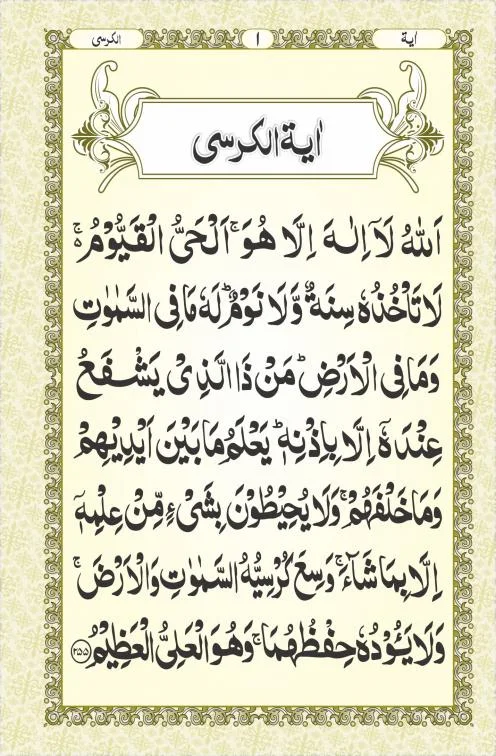 اٰیة
١
الکرسی
اٰیة الکرسی
اَللّٰهُ لَاۤ اِلٰهَ اِلَّا هُوَۚ اَلْحَیُّ الْقَیُّوْمُ ۬ۚ
لَا تَاْخُذُهٗ سِنَةٌ وَّلَا نَوْمٌؕ لَهٗ مَا فِی السَّمٰوٰتِ
وَمَا فِی الْاَرْضِؕ مَنْ ذَا الَّذِیْ یَشْفَعُ
عِنْدَهٗۤ اِلَّا بِاِذْنِهٖؕ یَعْلَمُ مَا بَیْنَ اَیْدِیْهِمْ
وَمَا خَلْفَهُمْۚ وَلَا یُحِیْطُوْنَ بِشَیْءٍ مِّنْ عِلْمِهٖۤ
اِلَّا بِمَا شَآءَۚ وَسِعَ كُرْسِیُّهُ السَّمٰوٰتِ وَالْاَرْضَۚ
وَلَا یَـُٔوْدُهٗ حِفْظُهُمَاۚ وَهُوَ الْعَلِیُّ الْعَظِیْمُ ﴿۲۵۵﴾